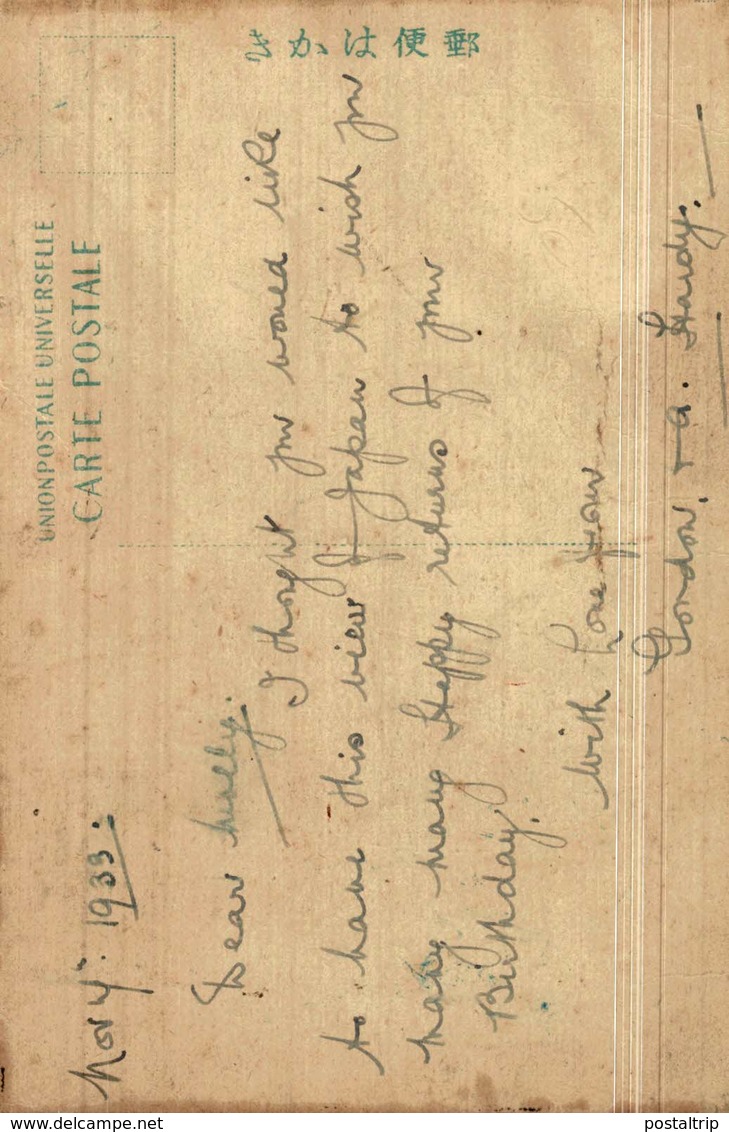 郵便はかき
UNION POSTALE UNIVERSELLE
CARTE POSTALE
Nov 4. 1933.
Dear Nelly.
I thought you would like
to have this view of Japan to wish you
many many Happy returns of your
Birthday.
With Love from
Gordon, + a. Hardy.
www.delcampe.net
postaltrip